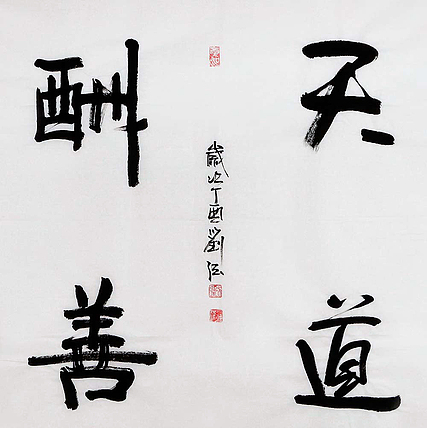 天道
酬善
歲次丁酉劉江